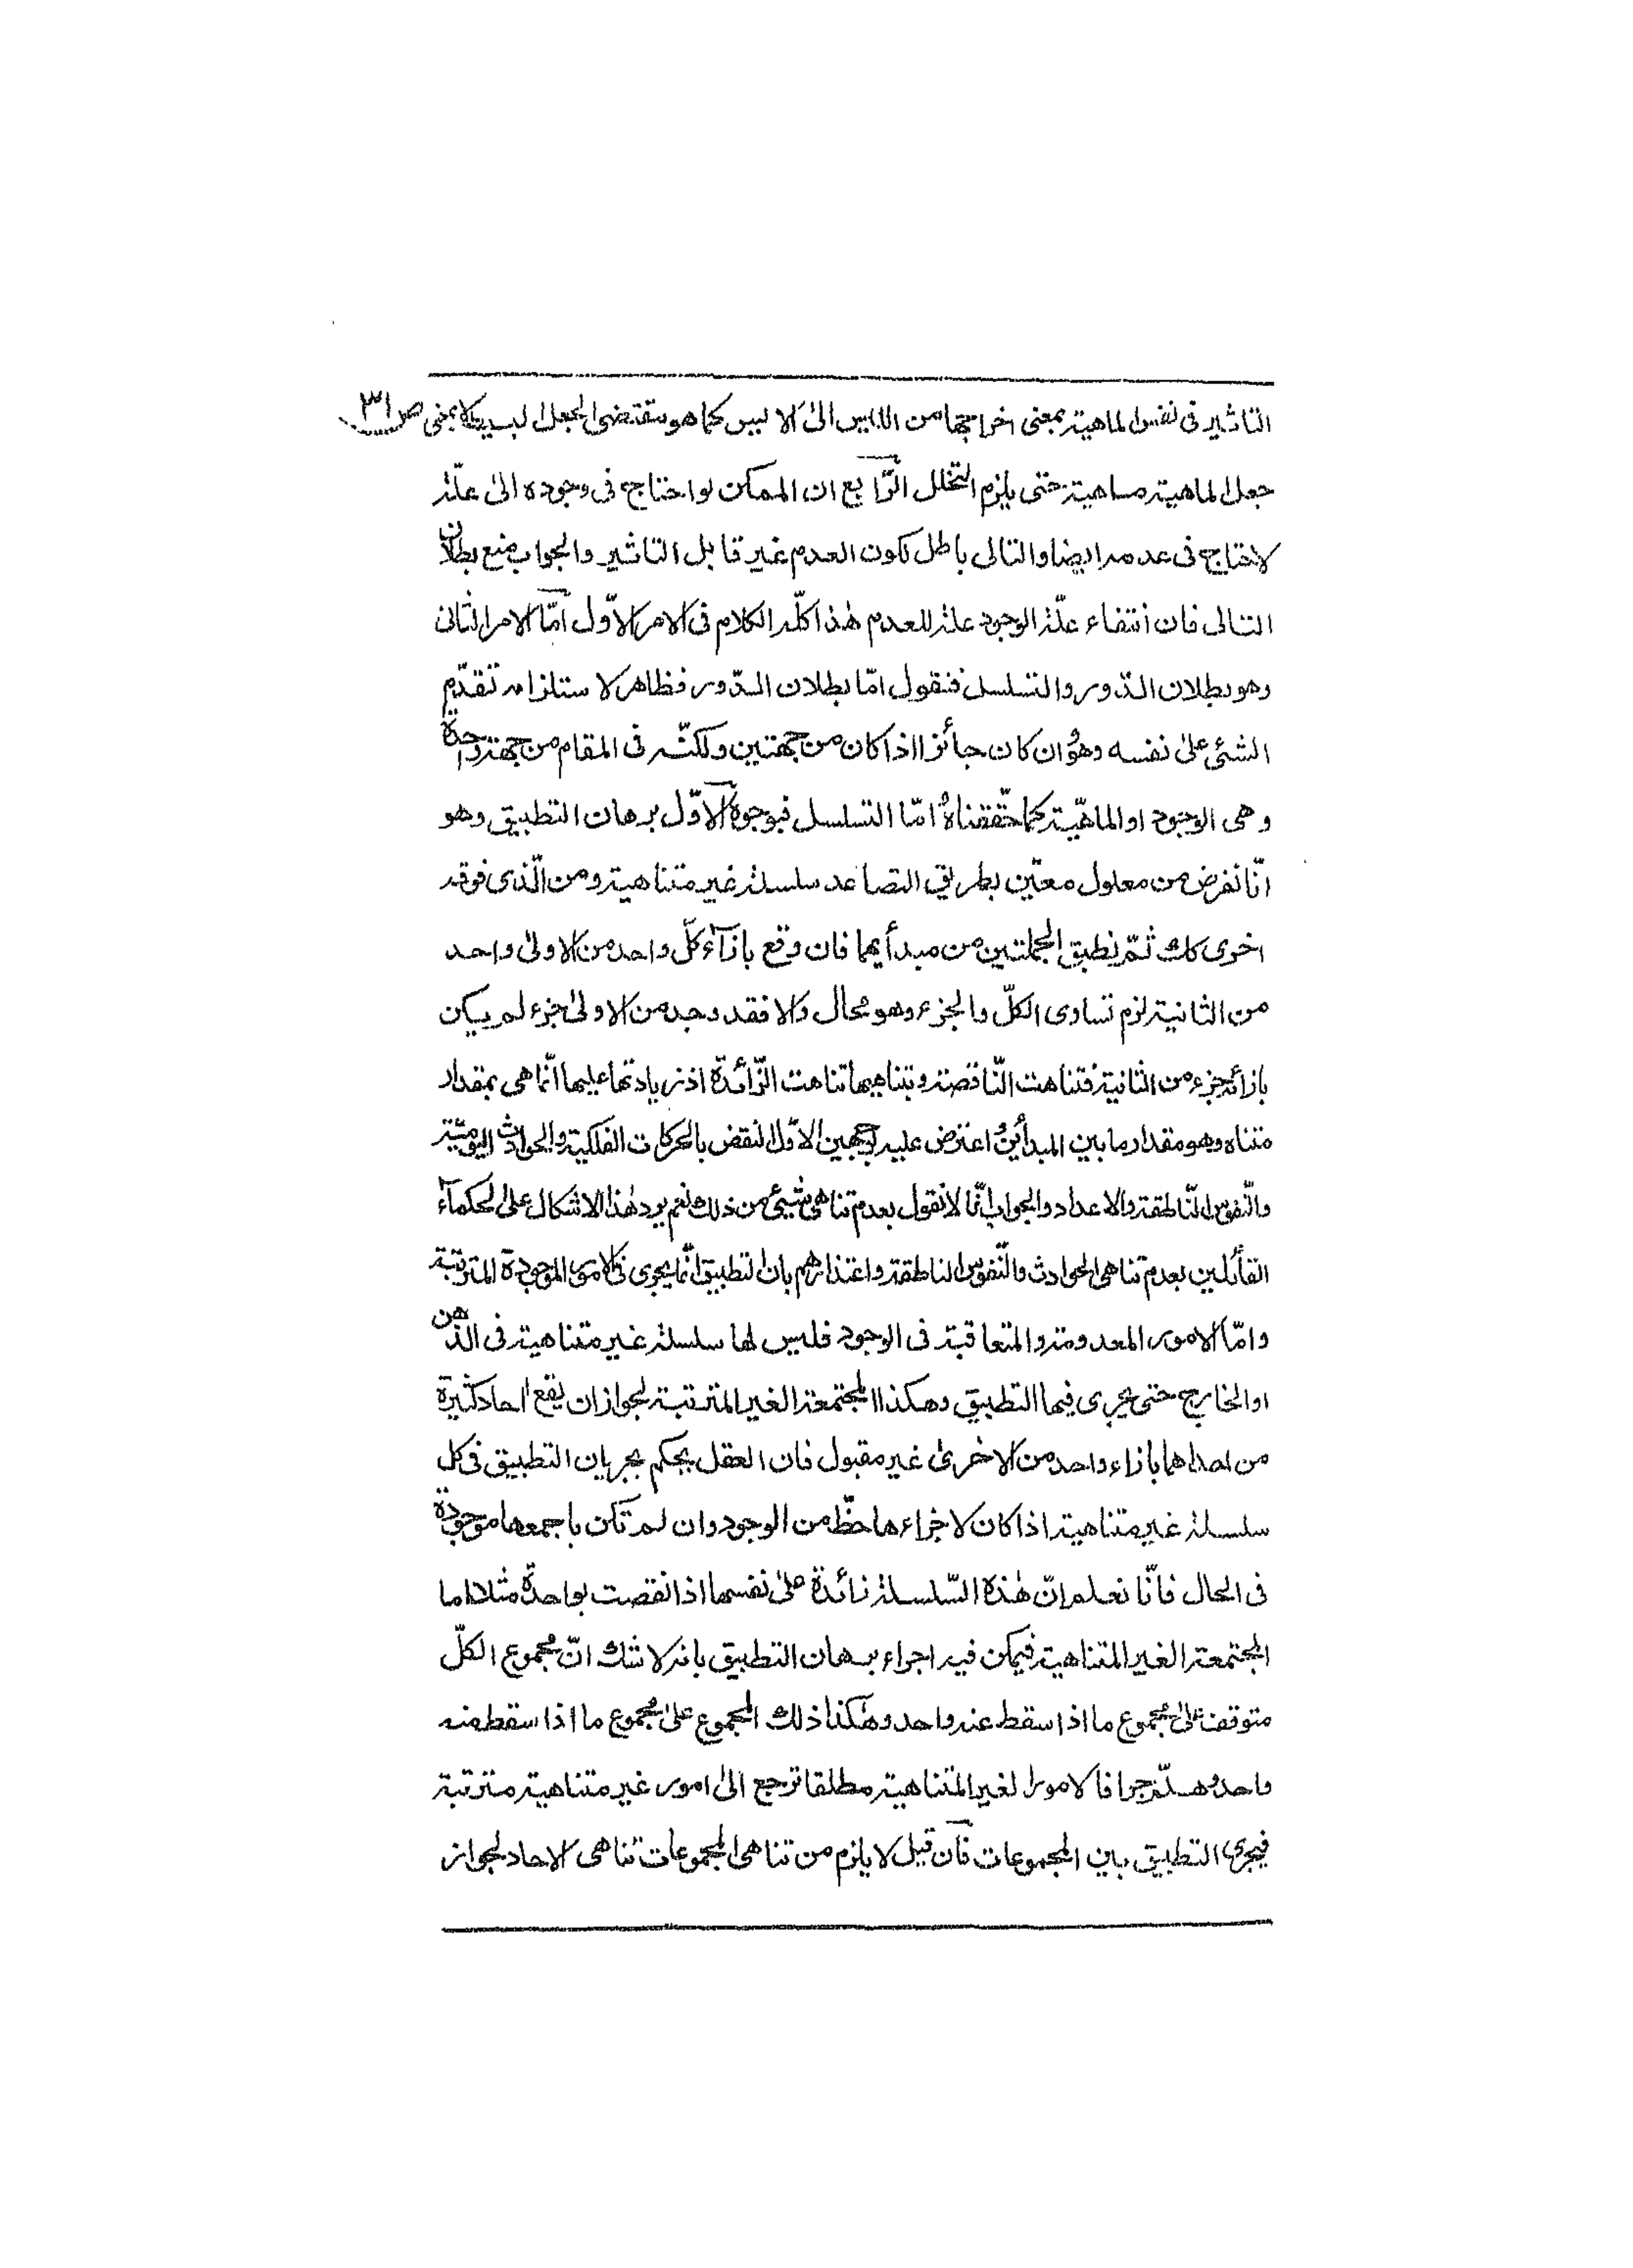 التاثير فى نفس الماهية بمعنى اخراجها من الليس الىٰ الايس كما هو مقتضى الجعل البسيط لا بمعنى ص٣١
جعل الماهية ماهية حتى يلزم التخلل الرّابع ان الممكن لو احتاج فى وجوده الىٰ علّة
لاحتاج فى عدمه ايضا والتالى باطل لكون العدم غير قابل التاثير والجواب منع بطلان
التالى فان انتفاء علّة الوجود علة للعدم هٰذا كلّه الكلام فى الامر الاوّل امّا الامر الثانى
وهو بطلان الدّور والتسلسل فنقول امّا بطلان الدّور فظاهر لاستلزامه تقدّم
الشئ علىٰ نفسه وهو وان كان جائزا اذا كان من جهتين ولكنّه فى المقام من جهة واحدة
وهى الوجود او الماهيّة كما حقّقناه امّا التسلسل فبوجوه الاوّل برهان التطبيق وهو
انّا نفرض من معلول معيّن بطريق التصاعد سلسلة غير متناهية ومن الّذى فوقه
اخرى كك ثمّ نطبق الجملتين من مبدأيهما فان وقع بازآء كلّ واحد من الاولىٰ واحد
من الثانية لزم تساوى الكلّ والجزء وهو محال والا فقد وجد من الاولىٰ جزء لم يكن
بازائه جزء من الثانية فتناهت النّاقصة وبتناهيها تناهت الزّائدة اذ زيادتها عليها انّما هى بمقدار
متناه وهو مقدار ما بين المبدأين واعترض عليه بوجهين الاوّل النقض بالحركات الفلكية والحوادث اليوميّة
والنّفوس النّاطقة والاعداد والجواب انّا لا نقول بعدم تناهى شيئ من ذلك نعم يرد هٰذا الاشكال على الحكمآء
القائلين بعدم تناهى الحوادث والنّفوس الناطقة واعتذارهم بان التطبيق انّما يجرى فى الامور الموجودة المترتبة
وامّا الامور المعدومة والمتعاقبة فى الوجود فليس لها سلسلة غير متناهية فى الذّهن
او الخارج حتى يجرى فيها التطبيق وهكذا المجتمعة الغير المترتبة لجواز ان يقع احاد كثيرة
من احداهما بازاء واحد من الاخرىٰ غير مقبول فان العقل يحكم بجريان التطبيق فى كل
سلسلة غير متناهية اذا كان لاجزاءها حظّ من الوجود وان لم تكن باجمعها موجودة
فى الحال فانّا نعلم انّ هٰذه السّلسلة زائدة علىٰ نفسها اذا نقصت بواحدة مثلا اما
المجتمعة الغير المتناهية فيمكن فيه اجراء برهان التطبيق بانه لا شك انّ مجموع الكلّ
متوقف علىٰ مجموع ما اذا سقط عنه واحد وهكذا ذلك المجموع علىٰ مجموع ما اذا سقط منه
واحد وهلمّ جرا فالامور الغير المتناهية مطلقا ترجع الىٰ امور غير متناهية مترتبة
فيجرى التطبيق بين المجموعات فان قيل لا يلزم من تناهى المجموعات تناهى الاحاد لجواز